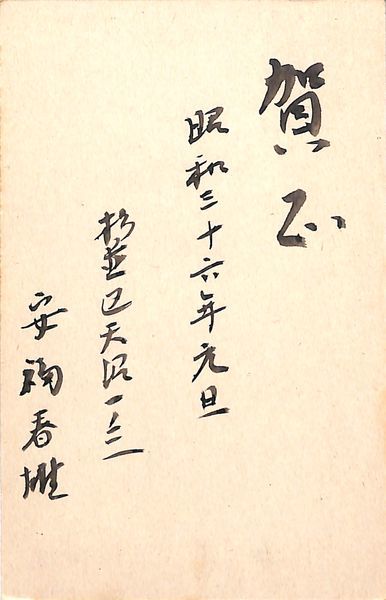 賀正
昭和三十六年元旦
杉並区天沼一ノ三
安 春雄